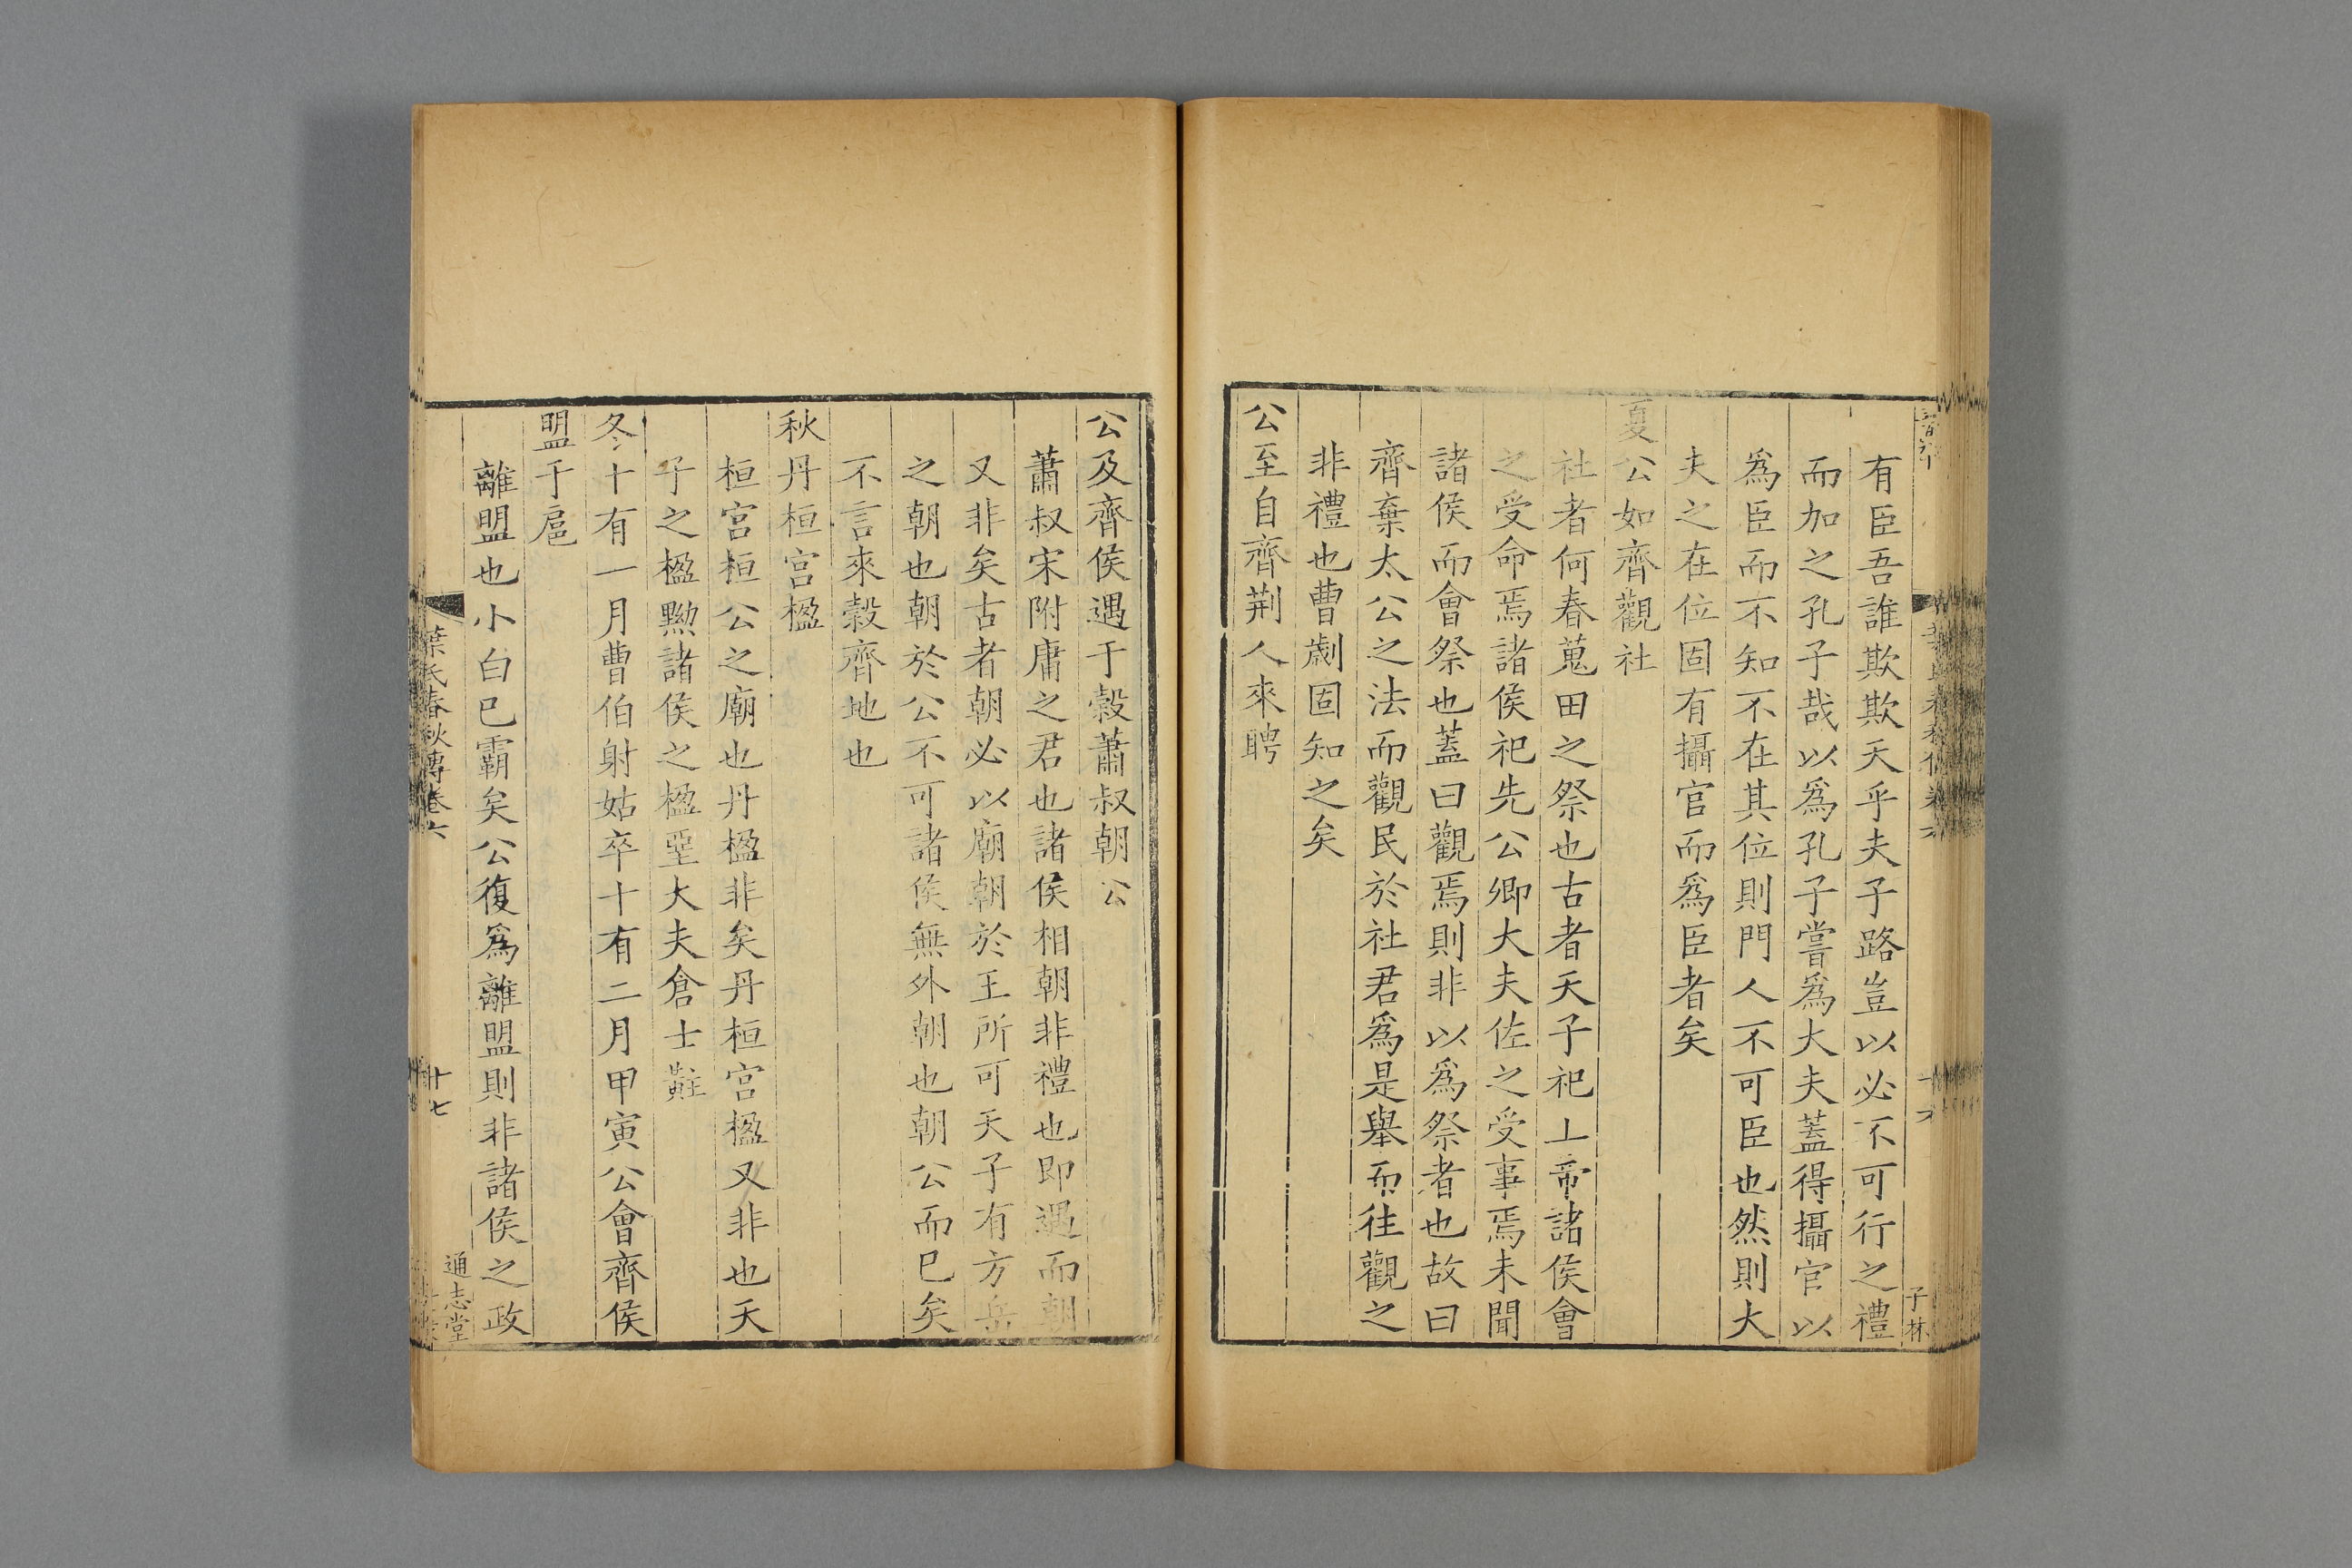 有臣吾誰欺欺天乎夫子路豈以必不可行之禮
而加之孔子哉以爲孔子嘗爲大夫蓋得攝官以
爲臣而不知不在其位則門人不可臣也然則大
夫之在位固有攝官而爲臣者矣
夏公如齊觀社
社者何春蒐田之祭也古者天子祀上帝諸侯會
之受命焉諸侯祀先公卿大夫佐之受事焉未聞
諸侯而會祭也蓋曰觀焉則非以爲祭者也故曰
齊棄太公之法而觀民於社君爲是舉而往觀之
非禮也曹劌固知之矣
公至自齊荆人來聘
子林
公及齊侯遇于榖蕭叔朝公
蕭叔宋附庸之君也諸侯相朝非禮也即遇而朝
又非矣古者朝必以廟朝於王所可天子有方岳
之朝也朝於公不可諸侯無外朝也朝公而巳矣
不言來榖齊地也
秋丹桓宮楹
桓宮桓公之廟也丹楹非矣丹桓宮楹又非也天
子之楹黝諸侯之楹堊大夫倉士黈
冬十有一月曹伯射姑卒十有二月甲寅公會齊侯
盟于扈
離盟也小白巳霸矣公復爲離盟則非諸侯之政
葉氏春秋傳卷六
十七
通志堂